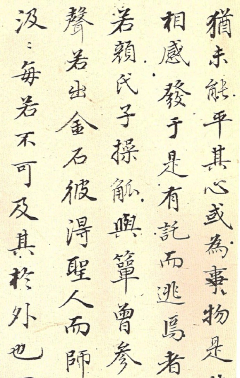 猶未能平其心或為事物是
相感發于是有託而逃焉者
若顏氏子操觚與簞曾參
聲若出金石彼得聖人而師
汲〻每若不可及其於外也